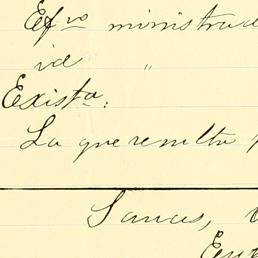 Efvo ministrad
id "
Exista.
La que resulta
Sanas,